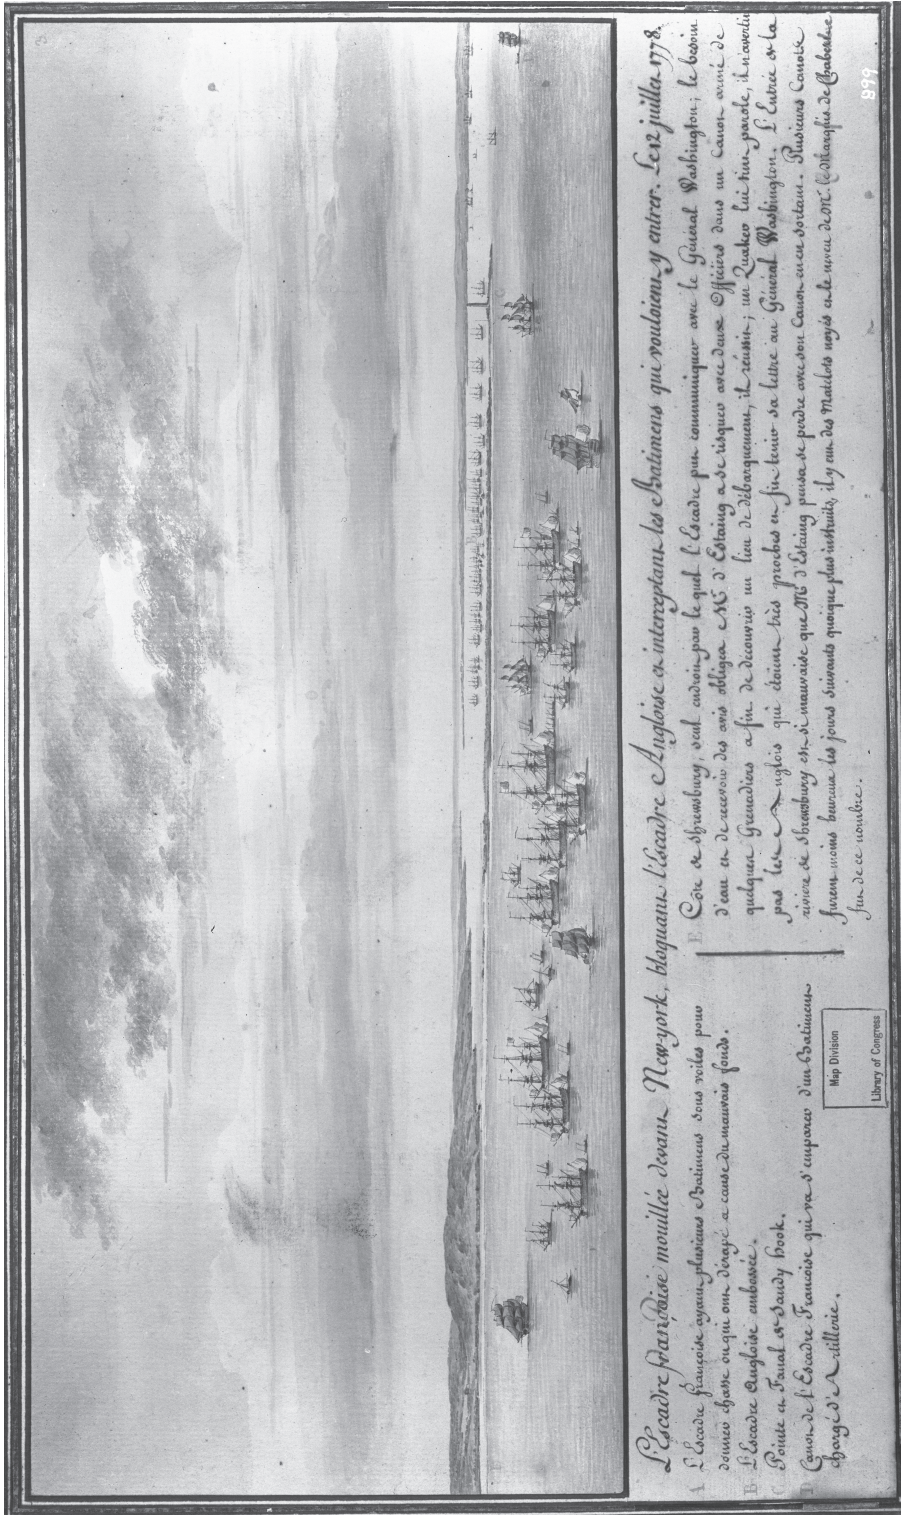 L'Escadre françoise mouillée devant New-york, bloquant l'Escadre Angloise et interceptant les Batimens qui vouloient y entrer. Le 12 juillet 1778.
A L'Escadre françoise ayant plusieurs Batimens sous voiles pour
donner chasse ou qui ont dérapé a cause du mauvais fonds.
B L'Escadre Angloise embossée.
C Pointe et Fanal de Sandy hook.
D Canot de l'Escadre Francoise qui va s'emparer d'un Batiment
chargé d'Artillerie.
E Côte de Shrewsbury, seul endroit par le quel l'Escadre put communiquer avec le Général Washington; le besoin
d'eau et de recevoir des avis obligea Mr. d'Estaing a se risquer avec deux Officiers dans un Canot armé de
quelques Grenadiers afin de découvrir un lieu de débarquement, il réussit; un Quaker lui tint parole, il n'avertit
pas les Anglois qui étoient très proches et fit tenir sa lettre au Général Washington. L'Entrée de la
riviere de Shrewsbury est si mauvaise que Mr. d'Estaing pensa se perdre avec son Canot en en sortant. Plusieurs Canots
furent moins heureux les jours suivants quoique plus instruits, il y eut des Matelots noyés et le neveu de Mr. le Marquis de Chabert
fut de ce nombre.
Map Division
Library of Congress
899